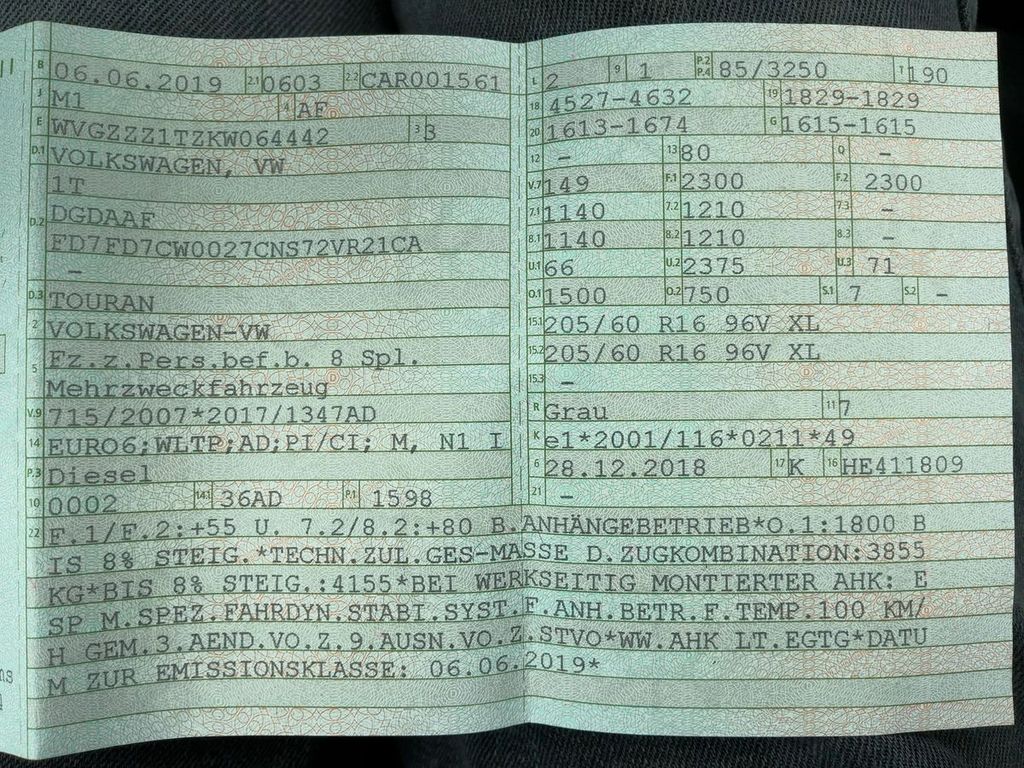 B 06.06.2019 2.1 0603 2.2 CAR001561
J M1 4 AF
E WVGZZZ1TZKW064442 3 3
D.1 VOLKSWAGEN, VW
1T
D.2 DGDAAF
FD7FD7CW0027CNS72VR21CA
-
D.3 TOURAN
2 VOLKSWAGEN-VW
5 Fz.z.Pers.bef.b. 8 Spl.
Mehrzweckfahrzeug
V.9 715/2007*2017/1347AD
14 EURO6;WLTP;AD;PI/CI; M, N1 I
P.3 Diesel
10 0002 14.1 36AD P.1 1598
L 2 9 1 P.2 P.4 85/3250 T 190
18 4527-4632 19 1829-1829
20 1613-1674 G 1615-1615
12 - 13 80 Q -
V.7 149 F.1 2300 F.2 2300
7.1 1140 7.2 1210 7.3 -
8.1 1140 8.2 1210 8.3 -
U.1 66 U.2 2375 U.3 71
O.1 1500 O.2 750 S.1 7 S.2 -
15.1 205/60 R16 96V XL
15.2 205/60 R16 96V XL
15.3 -
R Grau 11 7
K e1*2001/116*0211*49
6 28.12.2018 17 K 16 HE411809
21 -
22 F.1/F.2:+55 U. 7.2/8.2:+80 B.ANHÄNGEBETRIEB*O.1:1800 B
IS 8% STEIG.*TECHN.ZUL.GES-MASSE D.ZUGKOMBINATION:3855
KG*BIS 8% STEIG.:4155*BEI WERKSEITIG MONTIERTER AHK: E
SP M.SPEZ.FAHRDYN.STABI.SYST.F.ANH.BETR.F.TEMP.100 KM/
H GEM.3.AEND.VO.Z.9.AUSN.VO.Z.STVO*WW.AHK LT.EGTG*DATU
M ZUR EMISSIONSKLASSE: 06.06.2019*